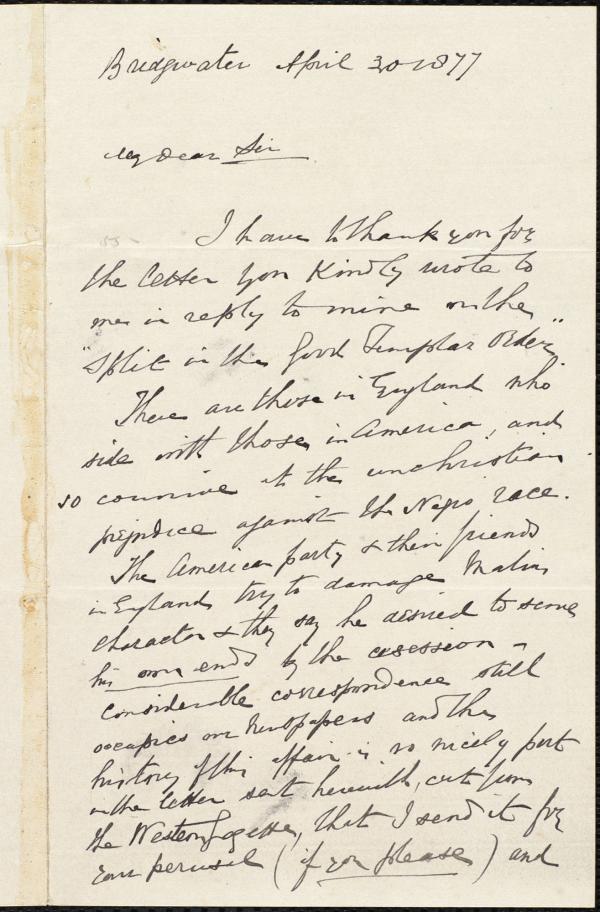 Bridgwater April 30 1877
My Dear Sir
I have to thank you for
the letter you Kindly wrote to
me in reply to mine on the
"Split in the Good Templar Order"
There are those in England who
side with those in America, and
so connive at the unchristian
prejudice against the Negro race.
The American party & their friends
in England try to damage Malins
character & they say he desired to serve
his own ends by the secession -
considerable correspondence still
occupies our Newspapers and the
history of this affair is so nicely put
in the letter sent herewith, cut from
the Western Gazette, that I send it for
your perusal (if you please) and